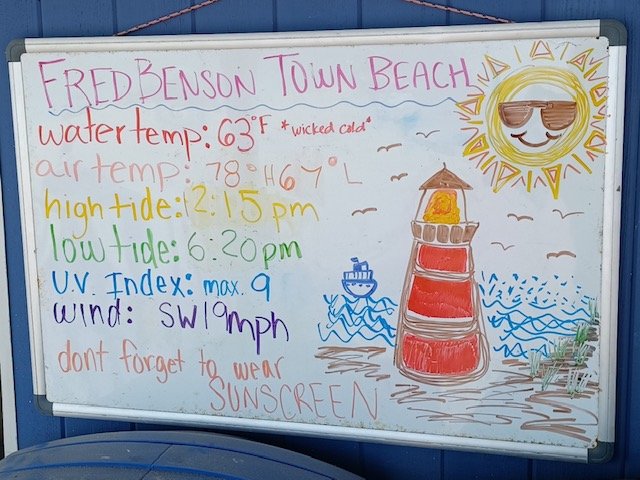 FRED BENSON TOWN BEACH
water temp: 63°F *wicked cold*
air temp: 78°H 67°L
high tide: 12:15 pm
low tide: 6:20pm
U.V. Index: max. 9
wind: SW 19mph
dont forget to wear
SUNSCREEN